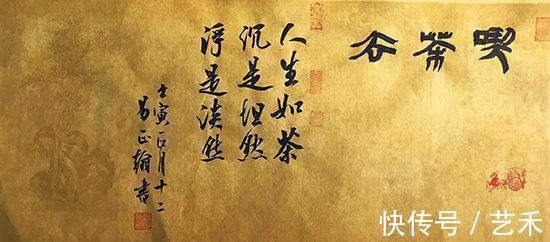 喫茶去
人生如茶
沉是坦然
浮是淡然
壬寅正月十二
易正翰書
快传号 / 艺禾